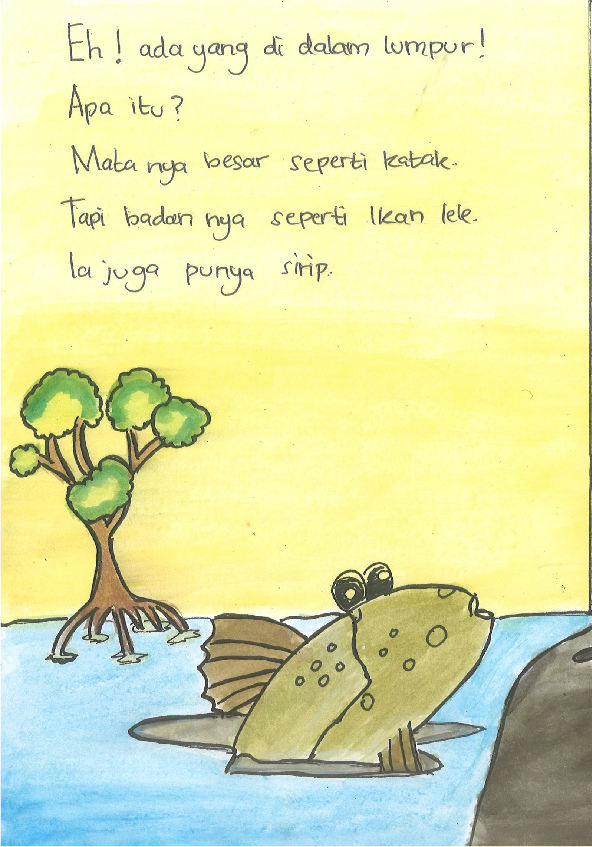 Eh! ada yang di dalam lumpur!
Apa itu?
Mata nya besar seperti katak.
Tapi badan nya seperti Ikan lele.
Ia juga punya sirip.